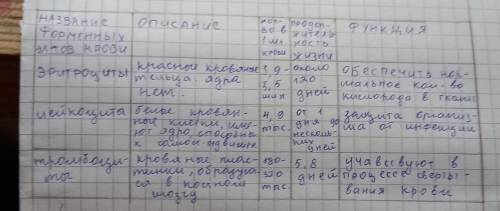 НАЗВАНИЕ ФОРМЕННЫХ ЭЛТОВ КРОВИ
ОПИСАНИЕ
КОЛ-ВО В 1 мл. крови
ПРОДОЛЖИТЕЛЬНОСТЬ ЖИЗНИ
ФУНКЦИЯ
ЭРИТРОЦИТЫ
красные кровяные
тельца. Ядра
нет.
3,9-
5,5
млн
около
120
дней
ОБЕСПЕЧИТЬ нор-
мальное кол-во
кислорода в ткани
лейкоцита
белые кровян-
ные клетки, име-
ют ядро, способны
к
4,9
тыс.
от 1
дня до
несколь-
ких дней
защита организ-
ма от инфекции
тромбоци-
ты
кровяные плас-
тинки, образую
ся в костном
мозгу
180-
320
тыс
5,8
дней
учавствуют в
процессе сверты-
вания крови